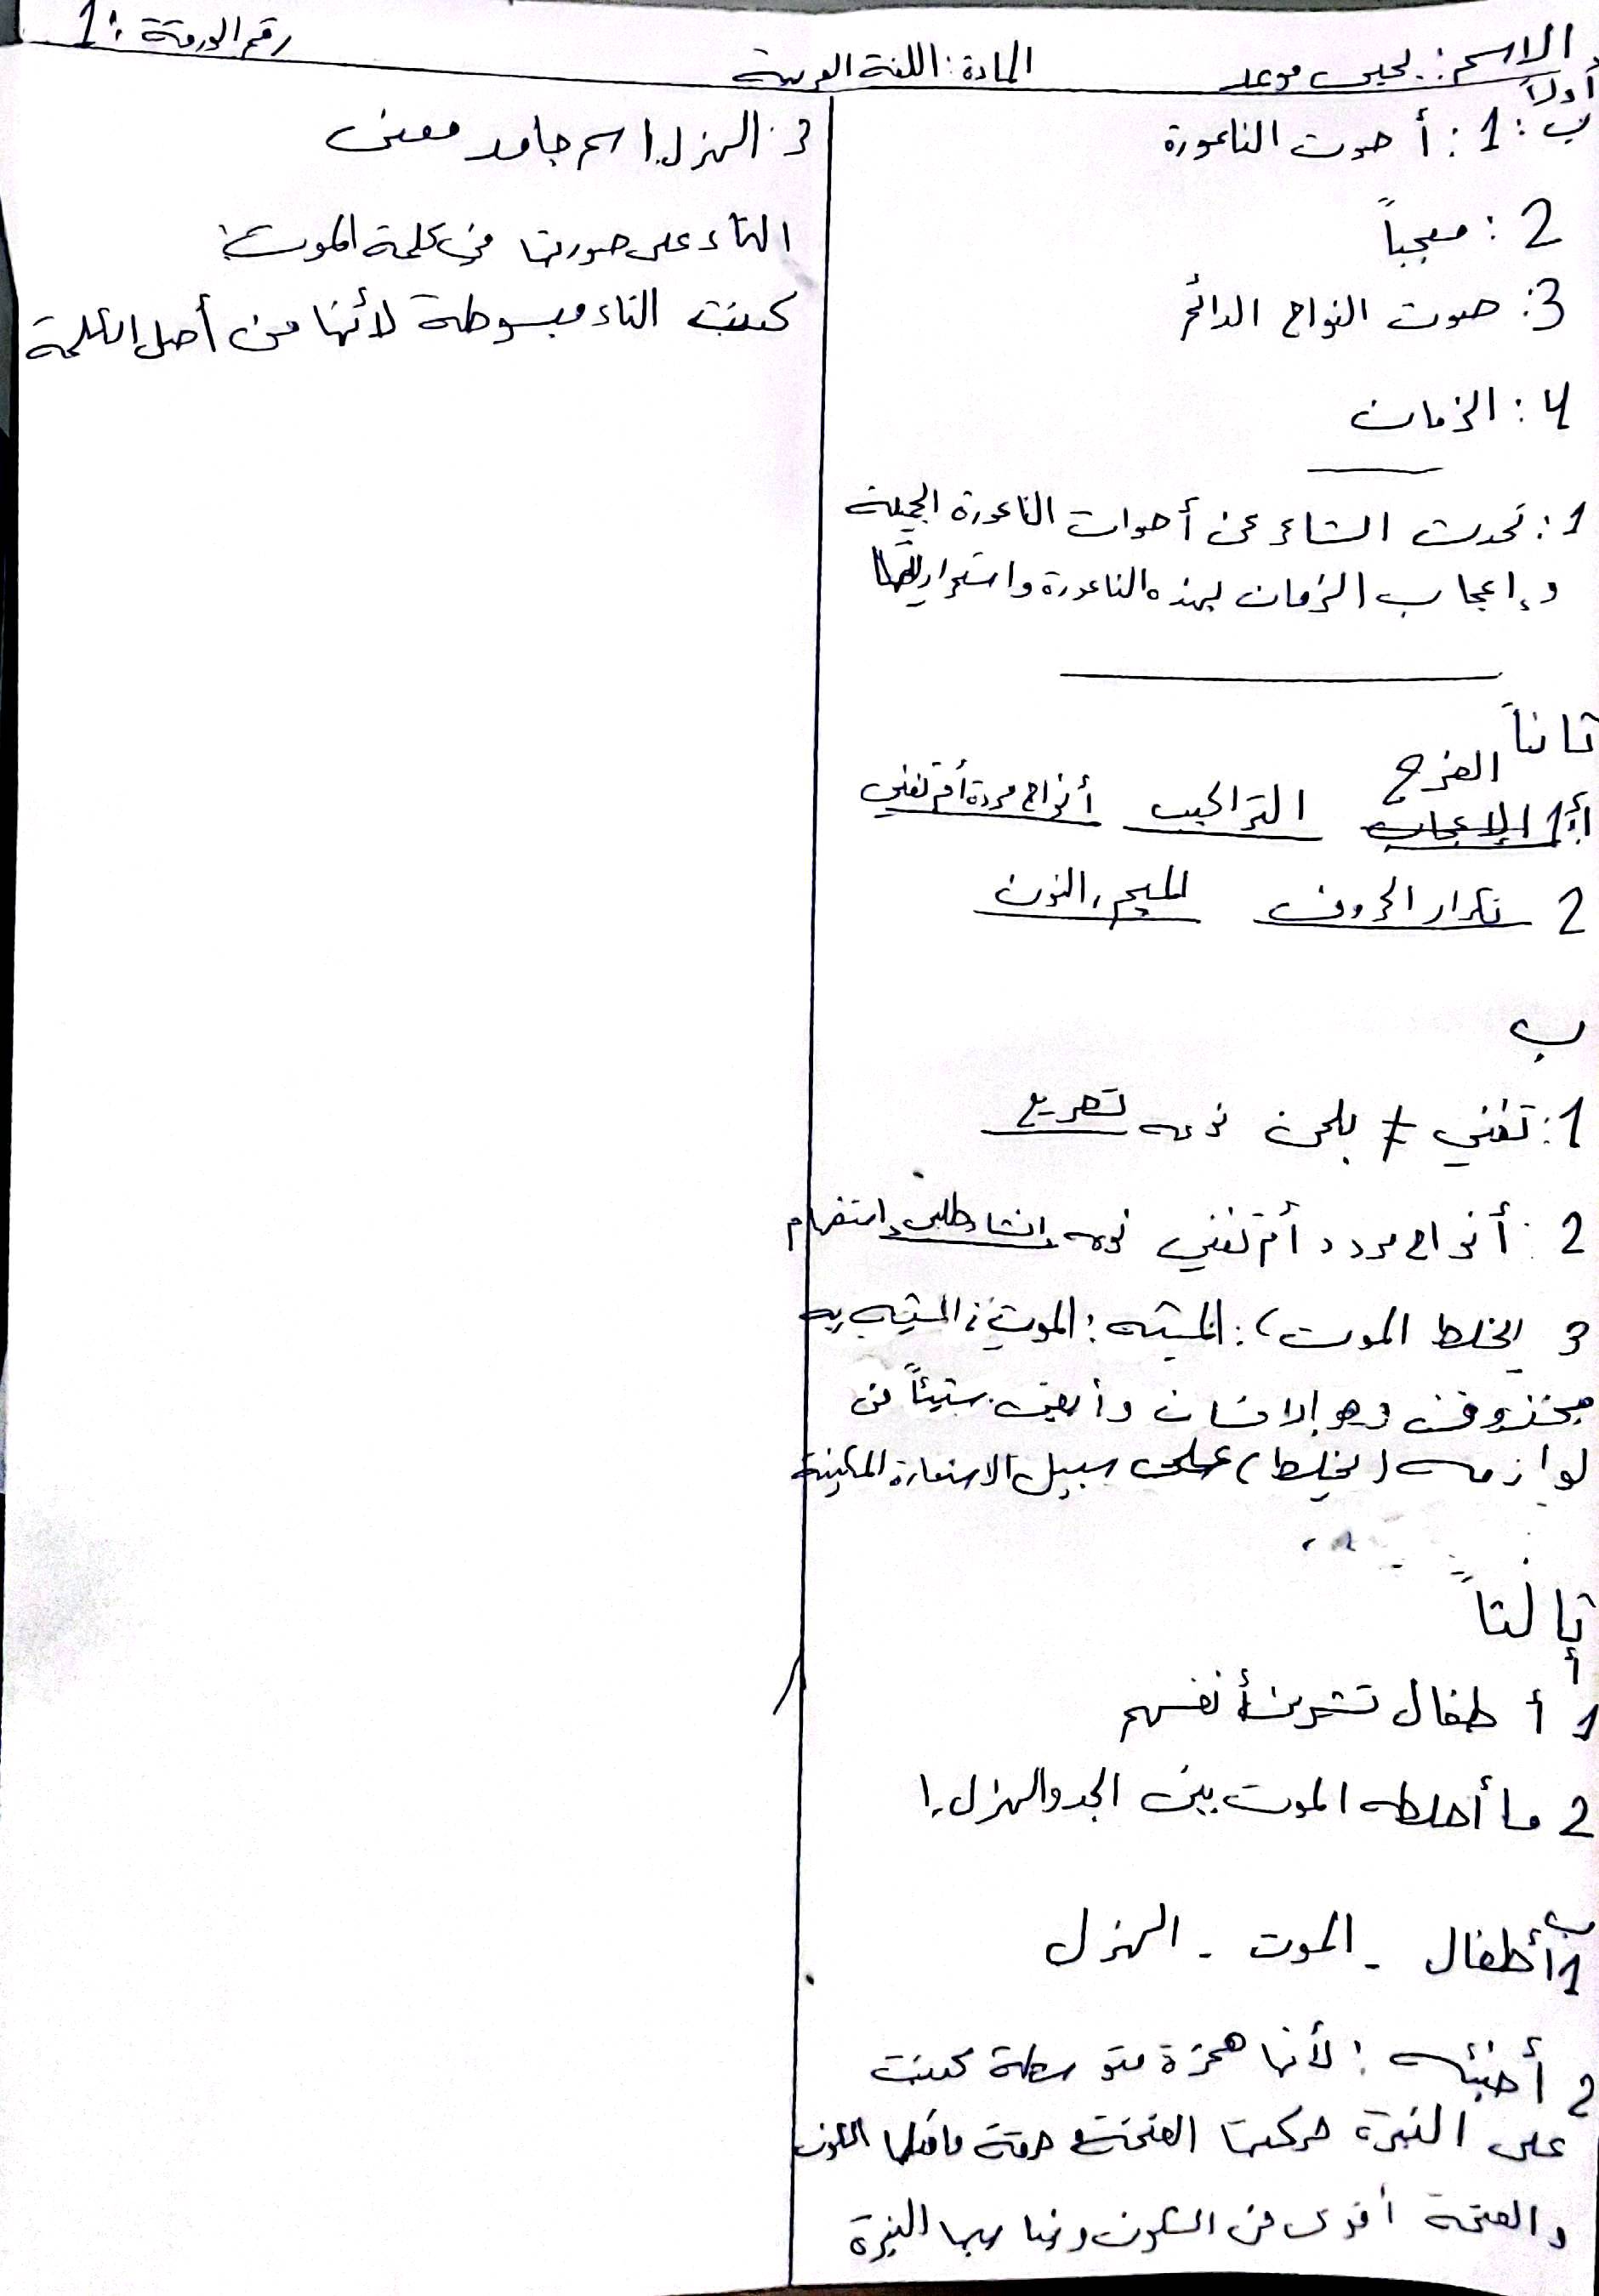 الاسم: يحيى موعد
المادة: اللغة العربية
رقم الورقة: 1
أولاً
ب: 1: أصوت الناعورة
2: معجباً
3: صوت النواح الدائم
4: الزمان
1: تحدث الشاعر عن أصوات الناعورة الجميلة
وإعجاب الزمان بهذه الناعورة واستمراريتها
ثانياً
الفرح
أ: 1 الإعجاب التراكيب أنواح مردد أم تغني
2 تكرار الحروف الميم، النون
ب
1: تغني ≠ بلحن نوعه تصريع
2: أنواح مردد أم تغني نوعه إنشاء طلبي استفهام
3 يخلط الموت): المشبه: الموت، المشبه به
محذوف وهو الإنسان وأبقى شيئاً من
لوازمه (يخلط) على سبيل الاستعارة المكنية
ثالثاً
أ
1 أطفال تشرين أنفسهم
2 ما أخلطه الموت بين الجد والهزل!
ب
1 أطفال - الموت - الهزل
2 أخبئه: لأنها همزة متوسطة كتبت
على النبرة حركتها الفتحة وما قبلها السكون
والفتحة أقوى من السكون ويناسبها النبرة
3: الهزل اسم جامد معنى
التاء على صورتها في كلمة الموت:
كتبت التاء مبسوطة لأنها من أصل الكلمة